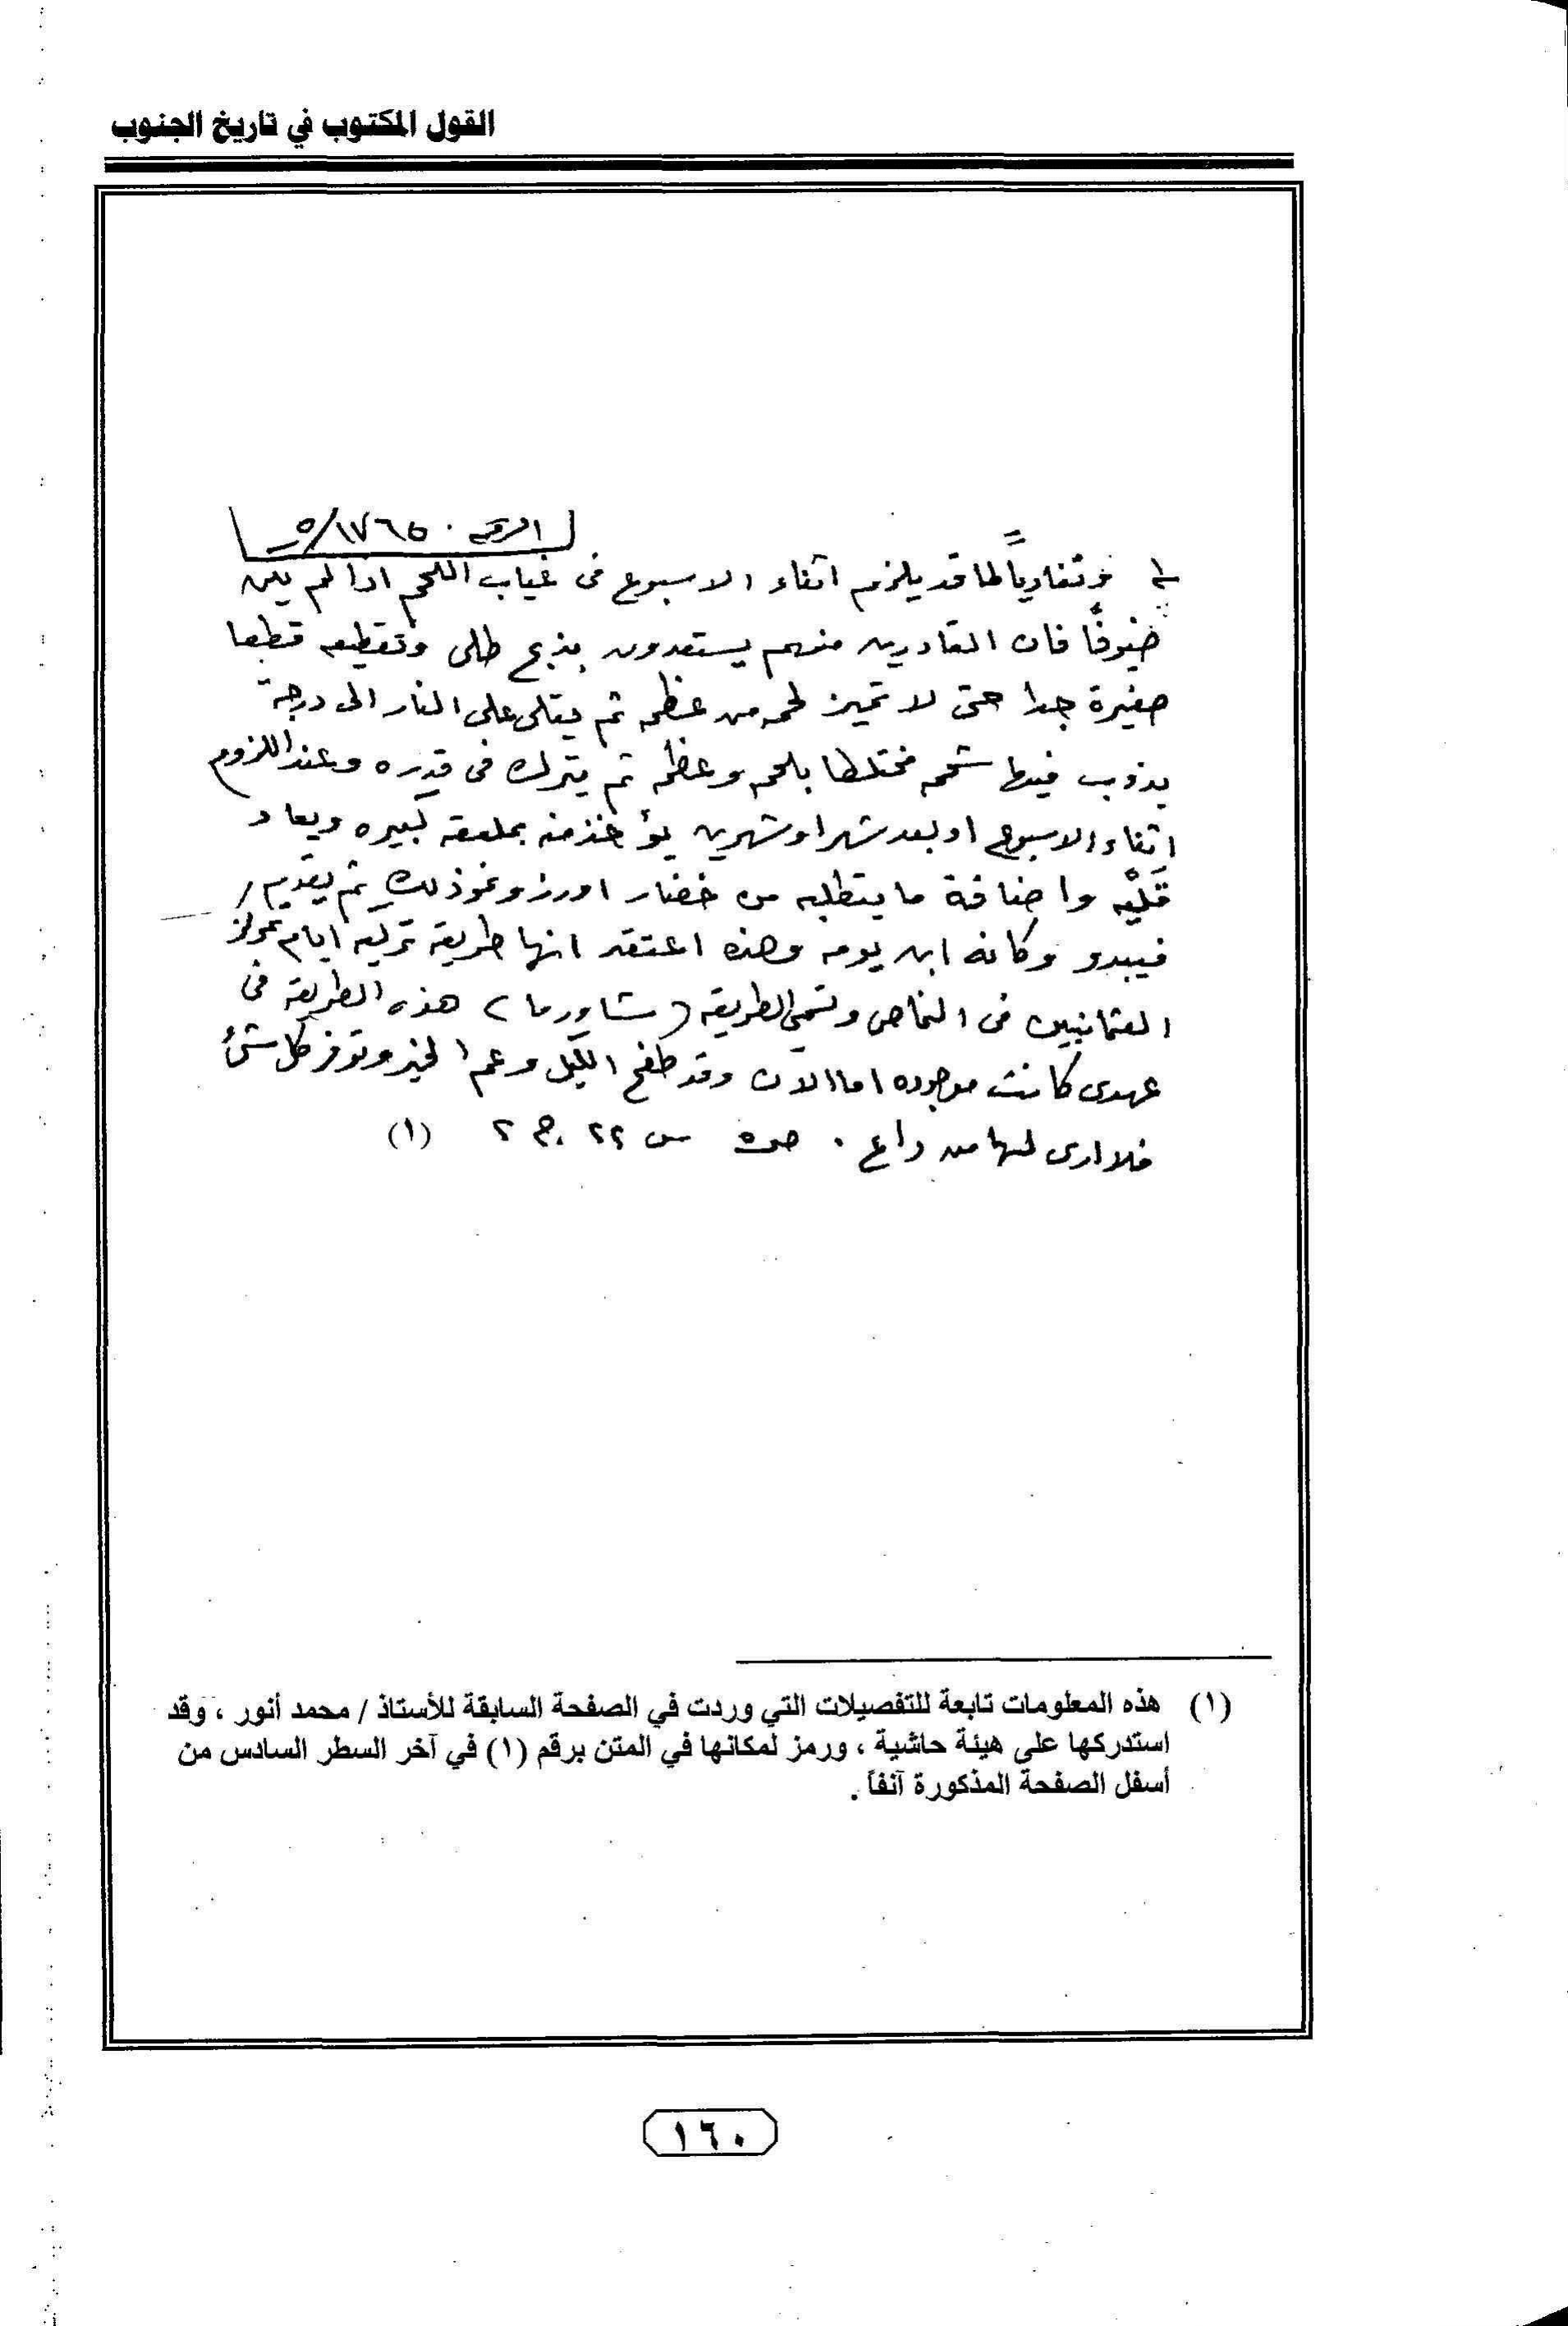 القول المكتوب في تاريخ الجنوب
١٧٦٥/٥
١ - وتفادياً لما قد يلزم اثناء الاسبوع فى غياب اللحم اذا لم يكن
ضيوفاً فان القادرين منهم يستعدون بذبح طلى وتقطيعه قطعا
صغيرة جدا حتى لا تميز لحمه من عظمه ثم يقلى على النار الى درجة
يذوب فيها شحمه مختلطا بلحمه وعظمه ثم يترك فى قدره وعند اللزوم
اثناء الاسبوع او بعد شهر او شهرين يؤخذ منه بملعقه كبيره ويعاد
قَليْه واضافة ما يتطلبه من خضار او رز ونحو ذلك ثم يقدم
فيبدو وكانه ابن يومه وهذه اعتقد انها طريقه تركيه ايام
العثمانيين فى النماص وتسمى الطريقه (شاورما) هذه الطريقه فى
عهدى كانت موجوده اما الان وقد طفح الكيل وعم الخير وتوفر كل شئ
فلا ارى لها من داع . ص٥ س ٢٢ ج ٢ (١)
(١) هذه المعلومات تابعة للتفصيلات التي وردت في الصفحة السابقة للأستاذ / محمد أنور ، وقد
استدركها على هيئة حاشية ، ورمز لمكانها في المتن برقم (١) في آخر السطر السادس من
أسفل الصفحة المذكورة آنفاً .
١٦٠